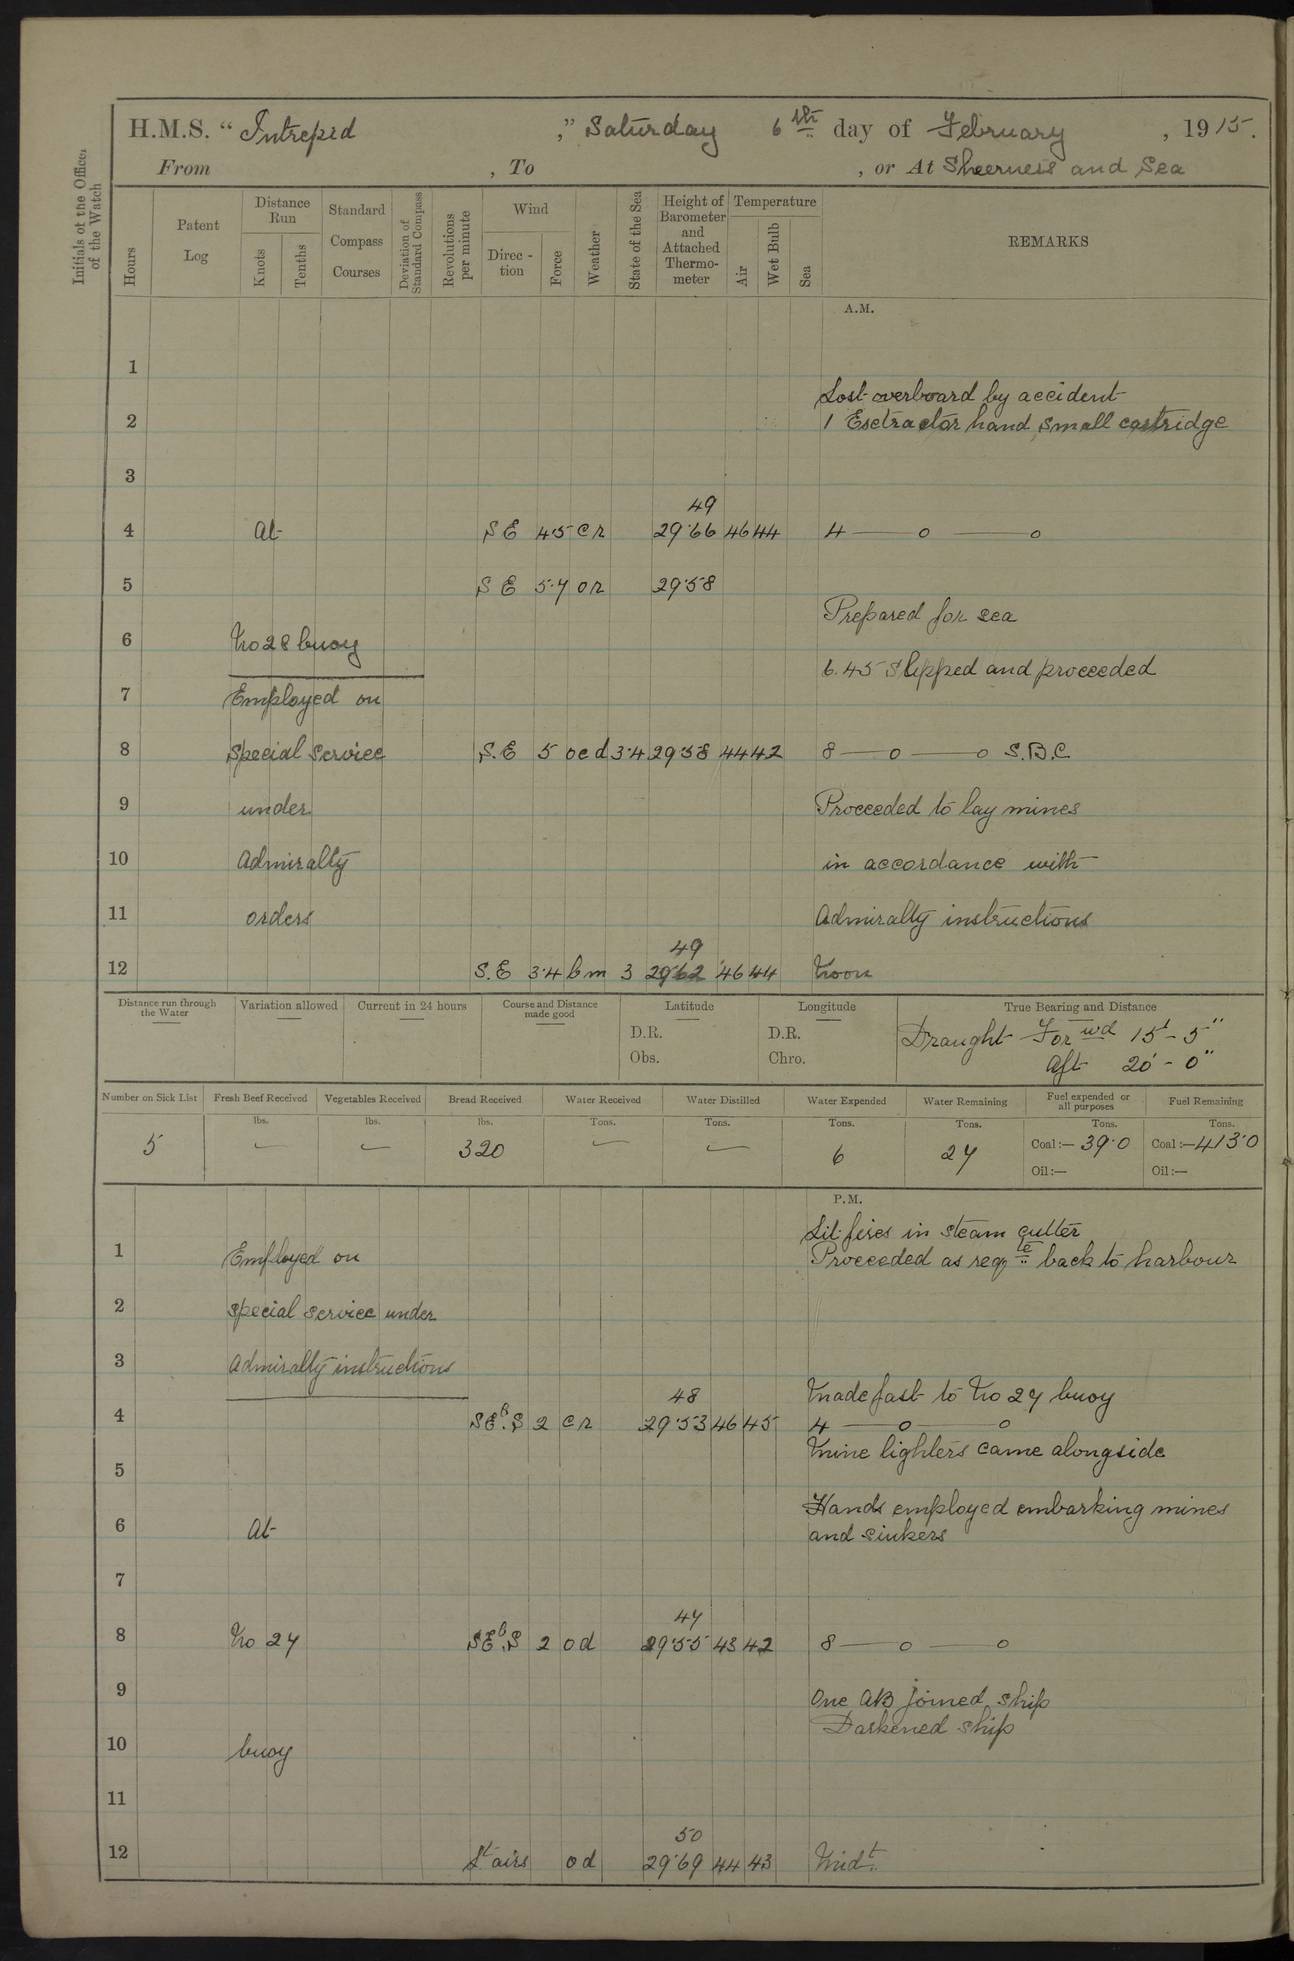 H.M.S. “ Intrepid ,” Saturday 6th day of February , 1915.
From , To , or At Sheerness and Sea
Initials of the Officer of the Watch
Hours
Patent Log
Distance Run
Knots
Tenths
Standard Compass Courses
Deviation of Standard Compass
Revolutions per minute
Wind
Direc-tion
Force
Weather
State of the Sea
Height of Barometer and Attached Thermo-meter
Temperature
Air
Wet Bulb
Sea
REMARKS
A.M.
1
Lost overboard by accident
2 1 Esctractor hand small cartridge
3
49
4 At S E 4.5 c r 29.66 46 44 4 — o — o
5 S E 5.7 o r 29.58
Prepared for sea
6 No 28 buoy
6.45 Slipped and proceeded
7 Employed on
8 Special Service S.E 5 o c d 3.4 29.58 44 42 8 — o — o S.B.C
9 under Proceeded to lay mines
10 Admiralty in accordance with
11 orders Admiralty instructions
49
12 S.E 3.4 b m 3 29.62 46 44 Noon
Distance run through the Water
Variation allowed
Current in 24 hours
Course and Distance made good
Latitude
D.R.
Obs.
Longitude
D.R.
Chro.
True Bearing and Distance
Draught Forwd 15' - 5"
Aft 20' - 0"
Number on Sick List Fresh Beef Received Vegetables Received Bread Received Water Received Water Distilled Water Expended Water Remaining Fuel expended or all purposes Fuel Remaining
lbs. lbs. lbs. Tons. Tons. Tons. Tons. Tons. Tons.
5 — — 320 — — 6 27 Coal:— 39.0 Coal:— 413.0
Oil:— Oil:—
P.M.
Lit fires in steam cutter
1 Employed on Proceeded as reqte back to harbour
2 special service under
3 Admiralty instructions
48 Made fast to No 27 buoy
4 SEb.S 2 c r 29.53 46 45 4 — o — o
Mine lighters came alongside
5
Hands employed embarking mines
6 At and sinkers
7
47
8 No 27 SEb.S 2 o d 29.55 43 42 8 — o — o
9 One AB joined ship
Darkened ship
10 buoy
11
50
12 Lt airs o d 29.69 44 43 Midt.